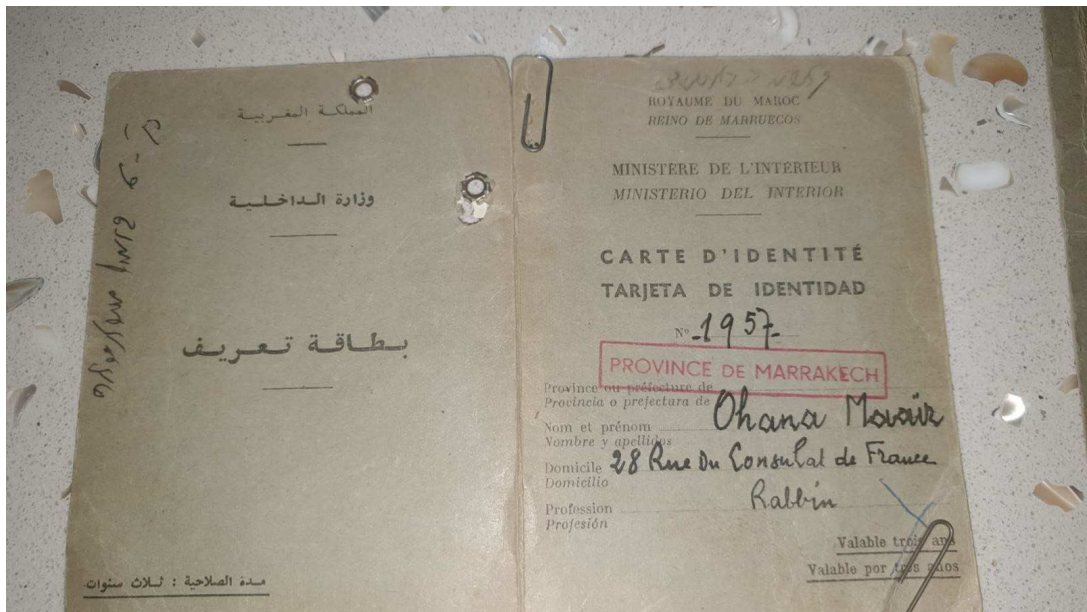 المملكة المغربية
وزارة الداخلية
بطاقة تعريف
مدة الصلاحية : ثلاث سنوات
ROYAUME DU MAROC
REINO DE MARRUECOS
MINISTÈRE DE L'INTÉRIEUR
MINISTERIO DEL INTERIOR
CARTE D'IDENTITÉ
TARJETA DE IDENTIDAD
N° 1957
PROVINCE DE MARRAKECH
Province ou préfecture de
Provincia o prefectura de
Nom et prénom Ohana
Nombre y apellidos
Domicile 28 Rue Du Consulat de France
Domicilio
Profession Rabbin
Profesión
Valable trois ans
Valable por tres años